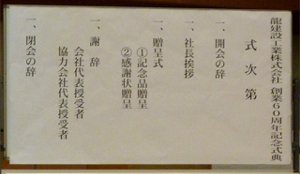 龍建設工業株式会社 創業60周年記念式典
式次第
一、開会の辞
一、社長挨拶
一、贈呈式
①記念品贈呈
②感謝状贈呈
一、謝辞
会社代表授受者
協力会社代表授受者
一、閉会の辞